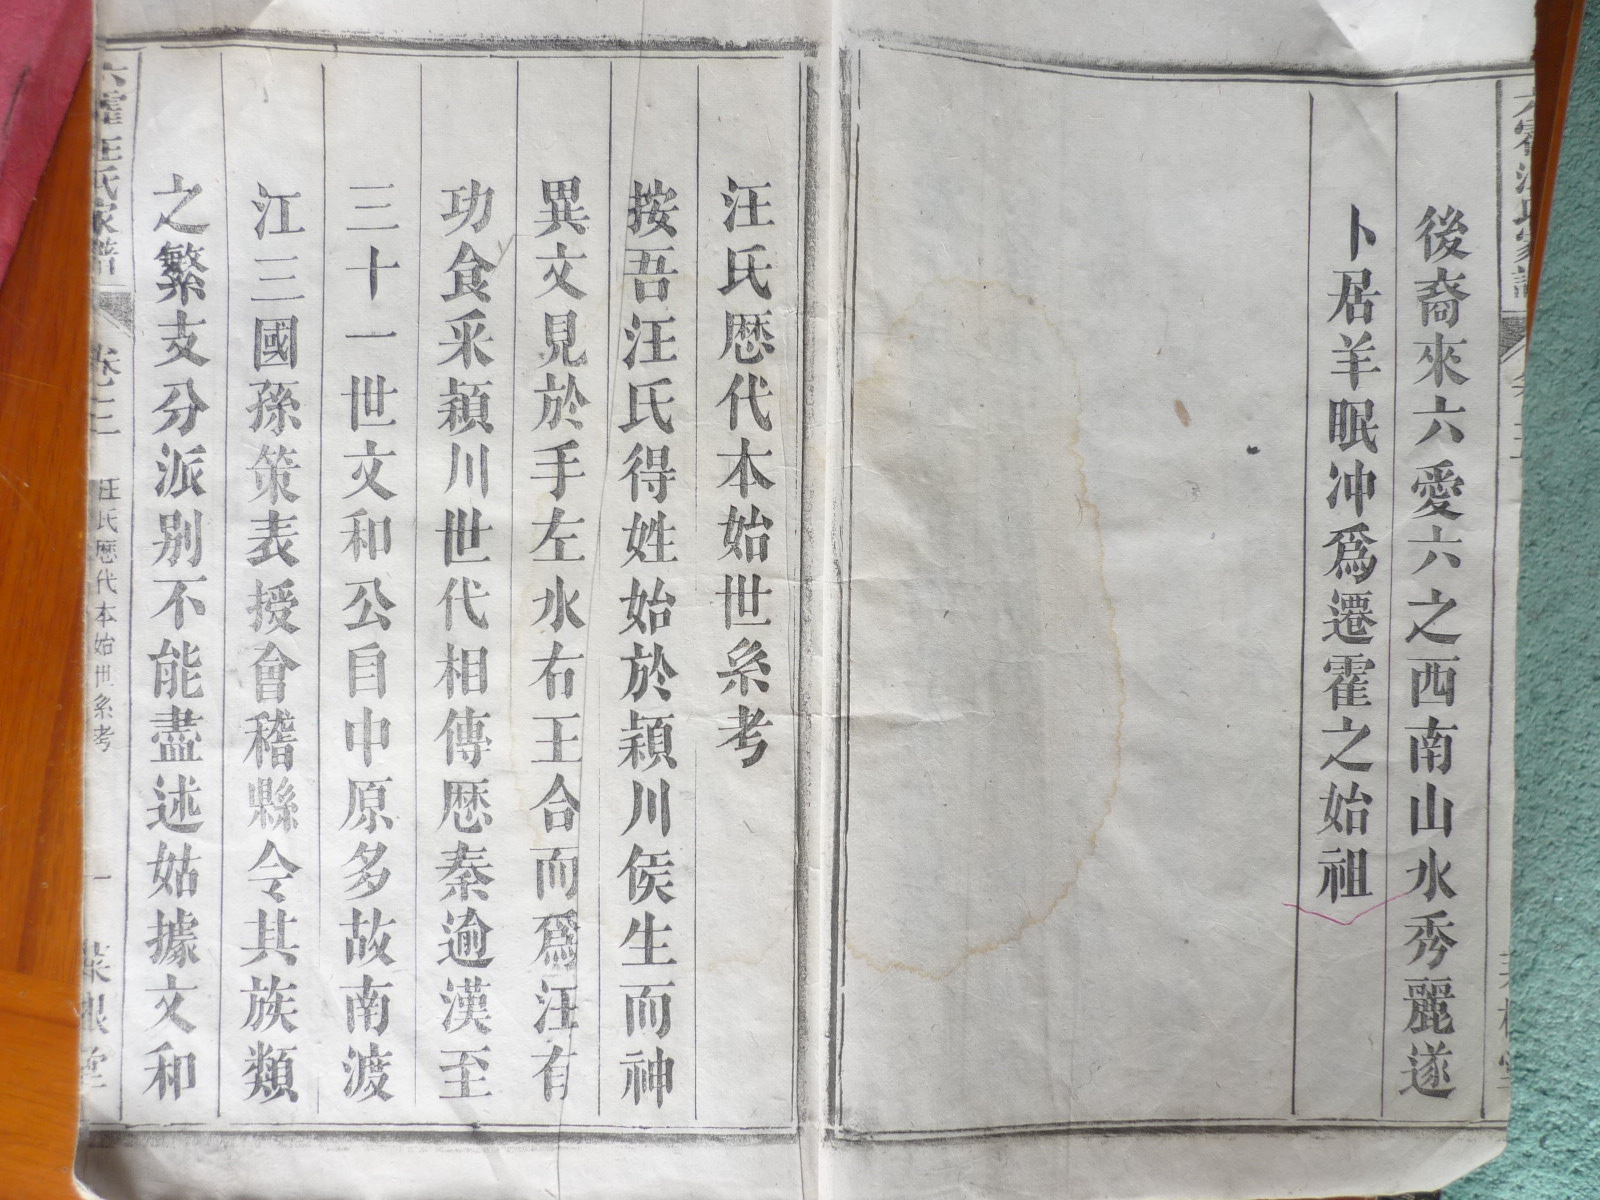 後裔來六愛六之西南山水秀麗遂
卜居羊眠冲爲遷霍之始祖
汪氏歴代本始世系考
按吾汪氏得姓始於穎川侯生而神
異文見於手左水右王合而爲汪有
功食采穎川世代相傳歴秦逾漢至
三十一世文和公自中原多故南渡
江三國孫策表授會稽縣令其族類
之繁支分派别不能盡述姑據文和
六霍汪氏家譜
卷之三
汪氏歴代本始世系考
一